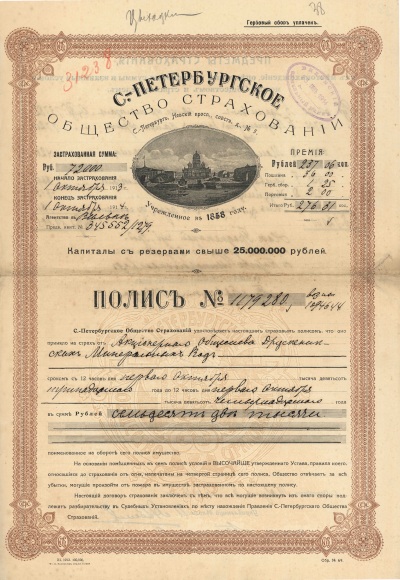 Гербовый сборъ уплаченъ.
31238
С.-ПЕТЕРБУРГСКОЕ
ОБЩЕСТВО СТРАХОВАНІЙ
С.-Петербургъ, Невскій просп., собств. д., № 5.
ЗАСТРАХОВАННАЯ СУММА:
Руб. 72000
НАЧАЛО ЗАСТРАХОВАНІЯ
1 октября 1913
КОНЕЦЪ ЗАСТРАХОВАНІЯ
1 октября 1914
Агентство въ
Предл. аген. № 345552/129
ПРЕМІЯ
Рублей 237 06 коп.
Пошлина 36 00
Герб. сборъ 1 25
Полисныя 2 00
Итого Руб. 276 31 коп.
Учрежденное въ 1858 году.
Капиталы съ резервами свыше 25.000.000 рублей.
ПОЛИСЪ № 1179280,
С.-Петербургское Общество Страхованій удостовѣряетъ настоящимъ страховымъ полисомъ, что оно
приняло на страхъ отъ Акціонернаго Общества Друскеникскихъ Минеральныхъ Водъ
срокомъ съ 12 часовъ дня перваго Октября тысяча девятьсотъ
тринадцатаго года по 12 часовъ дня перваго Октября
тысяча девятьсотъ четырнадцатаго года
въ суммѣ Рублей семьдесятъ двѣ тысячи
поименованное на оборотѣ сего полиса имущество.
На основаніи помѣщенныхъ на семъ полисѣ условій и ВЫСОЧАЙШЕ утвержденнаго Устава, правила коего
относительно страхованія отъ огня, напечатаны на четвертой страницѣ сего полиса, Общество отвѣчаетъ за всѣ
убытки, могущіе произойти отъ пожара въ имуществѣ, застрахованномъ по настоящему полису.
Настоящій договоръ страхованія заключенъ съ тѣмъ, что всѣ могущіе возникнуть изъ него споры подлежатъ
разбирательству въ Судебныхъ Установленіяхъ по мѣсту нахожденія Правленія С.-Петербургскаго Общества
Страхованій.